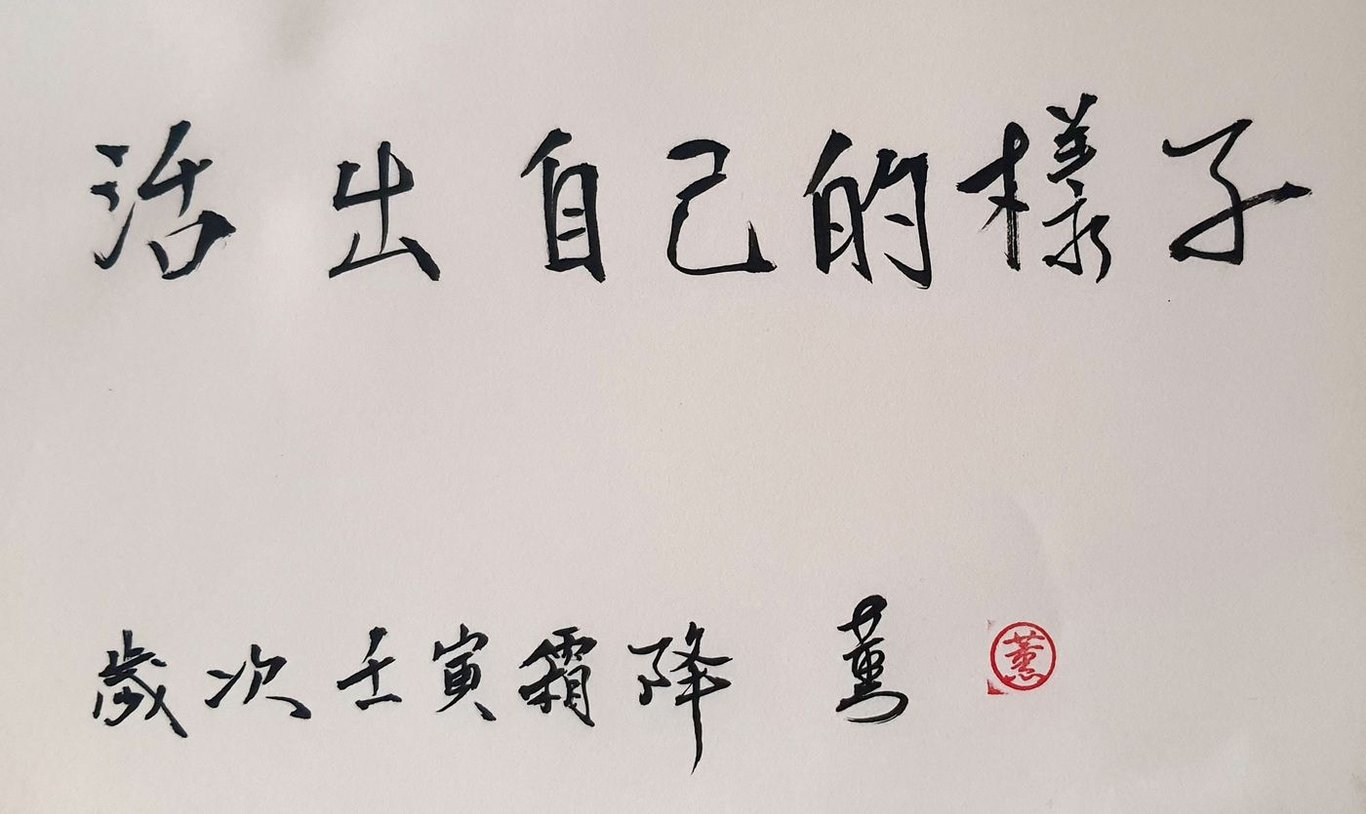 活出自己的樣子
歲次壬寅霜降 薰
薰